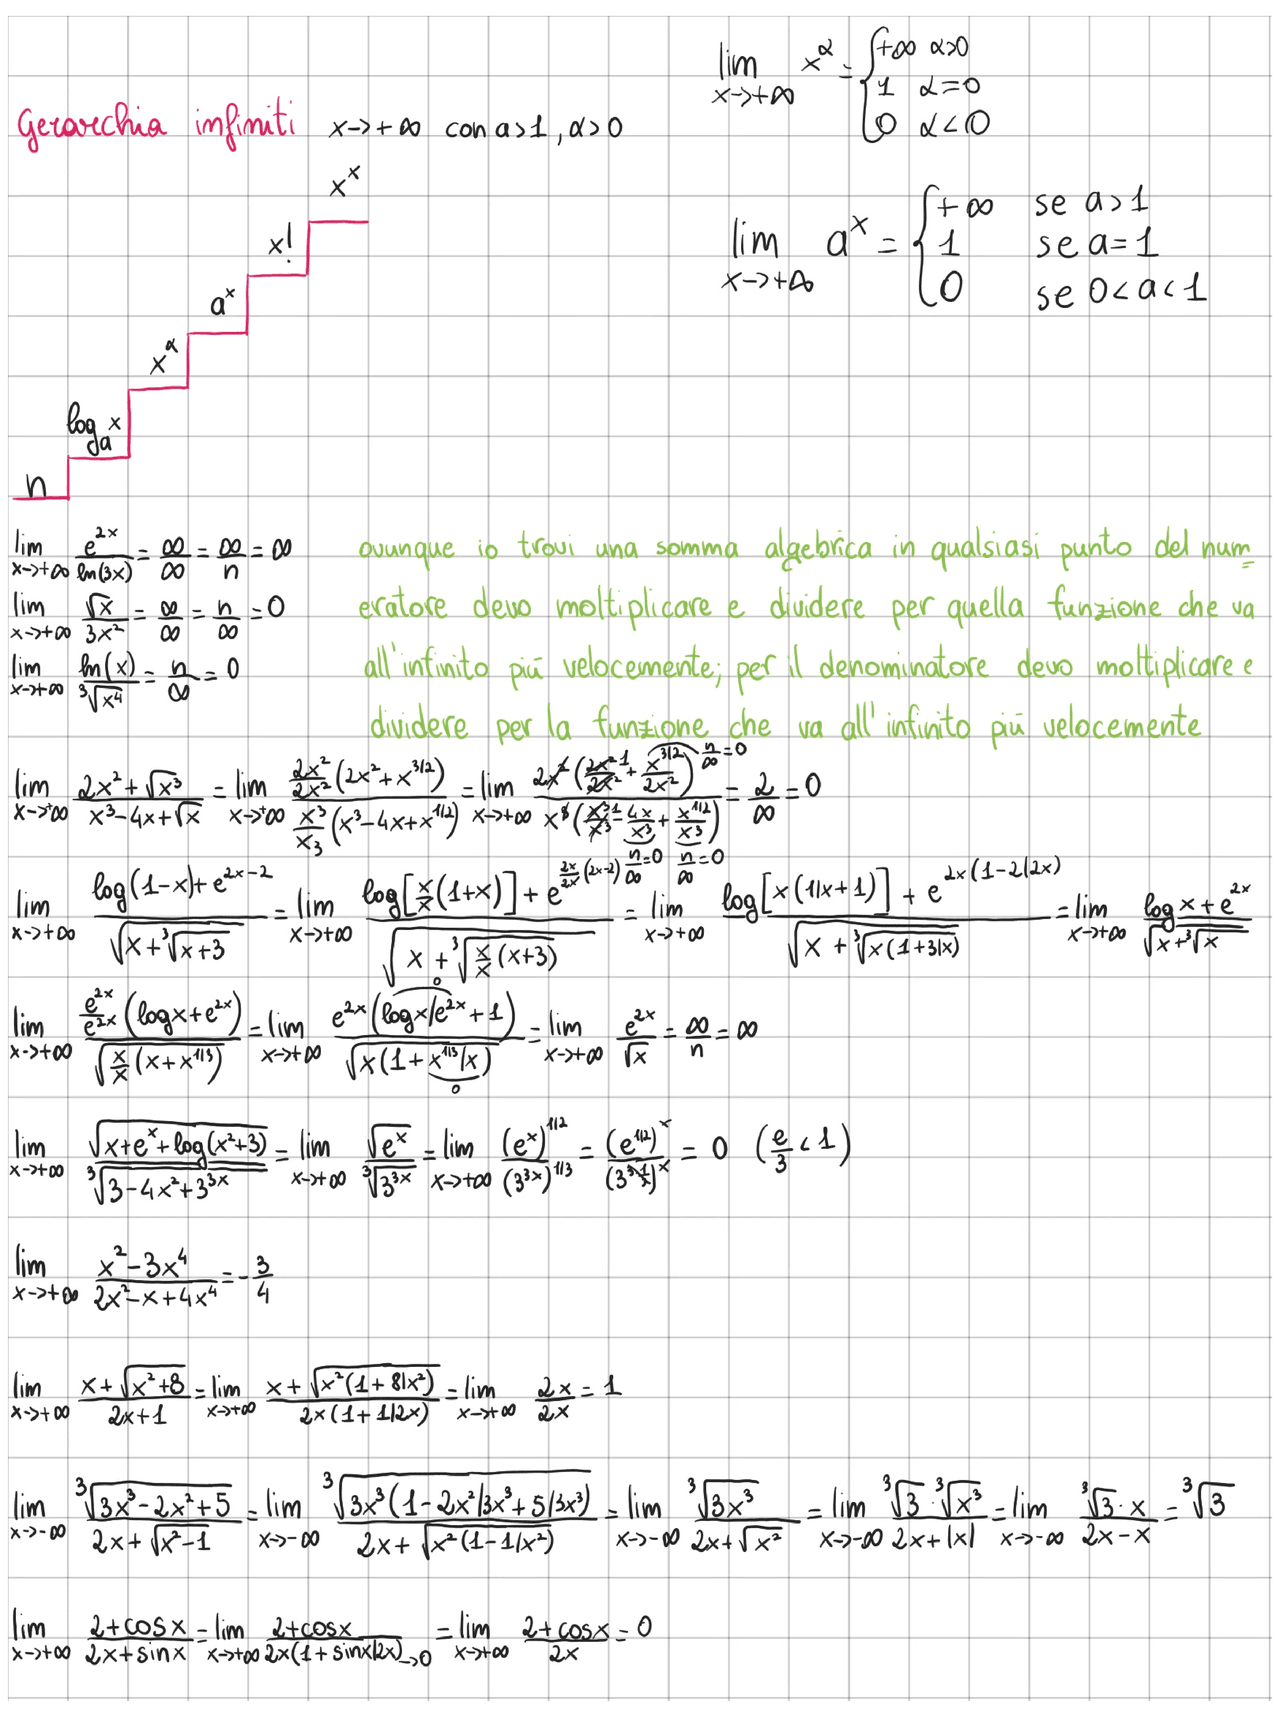 lim x->+∞ x^α = { +∞ α>0
1 α=0
0 α<0
Gerarchia infiniti x->+∞ con a>1, α>0
x^x
x!
a^x
x^α
log_a x
n
lim x->+∞ a^x = { +∞ se a>1
1 se a=1
0 se 0<a<1
lim x->+∞ e^(2x)/ln(3x) = ∞/∞ = ∞/n = ∞
lim x->+∞ √x/3x² = ∞/∞ = n/∞ = 0
lim x->+∞ ln(x)/³√x⁴ = n/∞ = 0
ovunque io trovi una somma algebrica in qualsiasi punto del num=
eratore devo moltiplicare e dividere per quella funzione che va
all'infinito più velocemente; per il denominatore devo moltiplicare e
dividere per la funzione che va all'infinito più velocemente
lim x->+∞ (2x²+√x³)/(x³-4x+√x) = lim x->+∞ (2x²/2x² (2x²+x^(3/2)))/(x³/x3 (x³-4x+x^(1/2))) = lim x->+∞ (2x² (2x²/2x² 1 + x^(3/2)/2x²) n/∞=0)/(x³ (x³/x³ 1 - 4x/x³ + x^(1/2)/x³) n/∞=0 n/∞=0) = 2/∞ = 0
lim x->+∞ (log(1-x)+e^(2x-2))/√(x+³√(x+3)) = lim x->+∞ (log[x/x(1+x)]+e^(2x/2x(2x-2)))/√(x+³√(x/x(x+3))) = lim x->+∞ (log[x(1/x+1)]+e^(2x(1-2/2x)))/√(x+³√(x(1+3/x))) = lim x->+∞ (log x+e^(2x))/√(x+³√x)
lim x->+∞ (e^(2x)/e^(2x) (log x+e^(2x)))/√(x/x (x+x^(1/3))) = lim x->+∞ (e^(2x)(log x/e^(2x) 0 +1))/√(x(1+x^(1/3)/x 0)) = lim x->+∞ e^(2x)/√x = ∞/n = ∞
lim x->+∞ √(x+e^x+log(x²+3))/³√(3-4x²+3^(3x)) = lim x->+∞ √e^x/³√3^(3x) = lim x->+∞ (e^x)^(1/2)/(3^(3x))^(1/3) = (e^(1/2))^x/(3^(3·1/3))^x = 0 (e/3 < 1)
lim x->+∞ (x²-3x⁴)/(2x²-x+4x⁴) = -3/4
lim x->+∞ (x+√(x²+8))/(2x+1) = lim x->+∞ (x+√(x²(1+8/x²)))/(2x(1+1/2x)) = lim x->+∞ 2x/2x = 1
lim x->-∞ ³√(3x³-2x²+5)/(2x+√(x²-1)) = lim x->-∞ ³√(3x³(1-2x²/3x³+5/3x³))/(2x+√(x²(1-1/x²))) = lim x->-∞ ³√3x³/(2x+√x²) = lim x->-∞ (³√3·³√x³)/(2x+|x|) = lim x->-∞ (³√3·x)/(2x-x) = ³√3
lim x->+∞ (2+cosx)/(2x+sinx) = lim x->+∞ (2+cosx)/(2x(1+sinx/2x)->0) = lim x->+∞ (2+cosx)/2x = 0